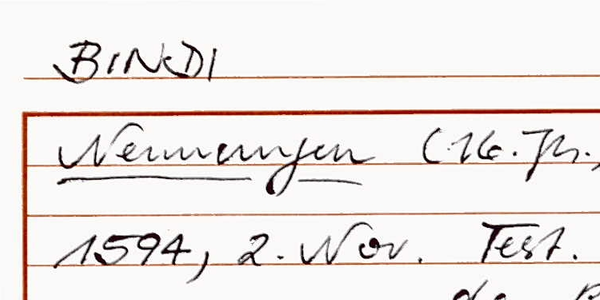 BINDI
Nennungen (16. Jh.,
1594, 2. Nov. Test.